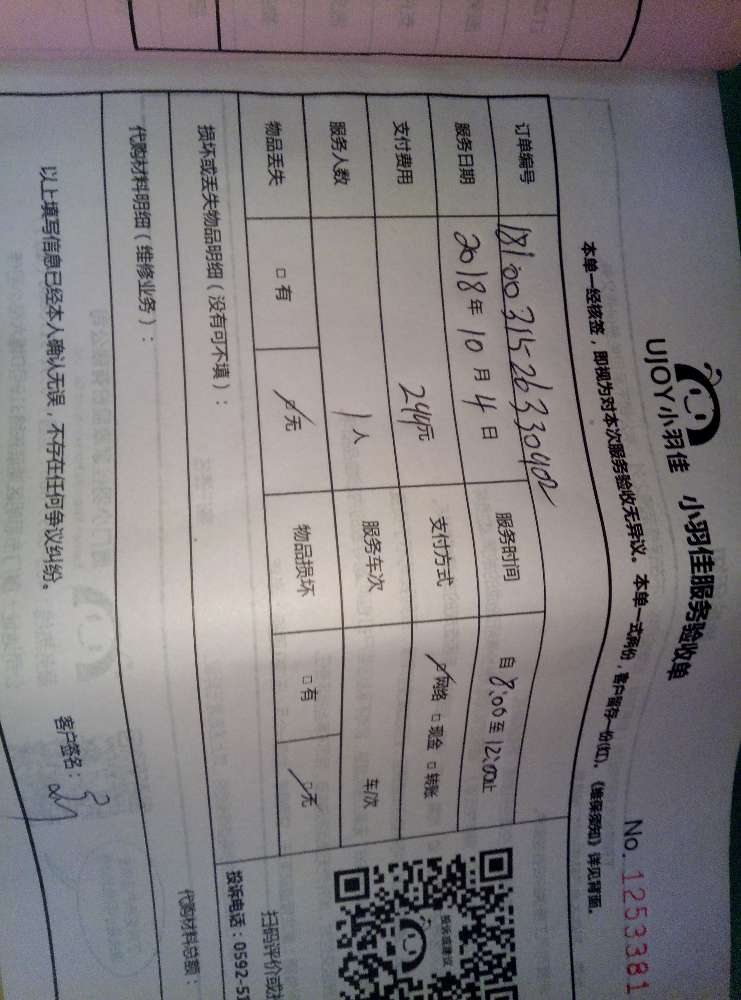 UJOY小羽佳 小羽佳服务验收单
No. 1253381
本单一经核签，即视为对本次服务验收无异议。本单一式两份，客户留存一份(红)，《维保须知》详见背面。
订单编号 1810031526330402
服务日期 2018年10月4日 服务时间 自8:00至12:00止
支付费用 元 支付方式 网络 □现金 □转账
服务人数 1人 服务车次 车/次
物品丢失 □有 □无 物品损坏 □有 □无
损坏或丢失物品明细（没有可不填）：
代购材料明细（维修业务）：
代购材料总额：
以上填写信息已经本人确认无误，不存在任何争议纠纷。
客户签名：
投诉或建议
扫码评价或
投诉电话：0592-5